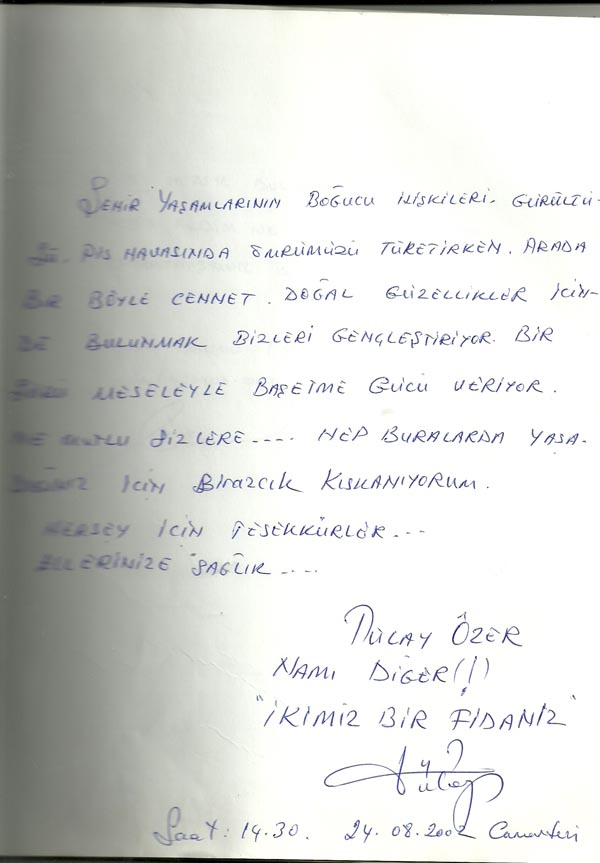 ŞEHİR YAŞAMLARININ BOĞUCU İLİŞKİLERİ. GÜRÜLTÜ-
SÜ. PİS HAVASINDA ÖMRÜMÜZÜ TÜKETİRKEN. ARADA
BİR BÖYLE CENNET. DOĞAL GÜZELLİKLER İÇİN-
DE BULUNMAK BİZLERİ GENÇLEŞTİRİYOR. BİR
SÜRÜ MESELEYLE BAŞETME GÜCÜ VERİYOR.
NE MUTLU SİZLERE.... HEP BURALARDA YAŞA-
DIĞINIZ İÇİN BİRAZCIK KISKANIYORUM.
HERŞEY İÇİN TEŞEKKÜRLER...
ELLERİNİZE SAĞLIK....
TÜLAY ÖZER
NAMI DİĞER(!)
"İKİMİZ BİR FİDANIZ"
Tülay
Saat: 14.30. 24.08.2002 Cumartesi